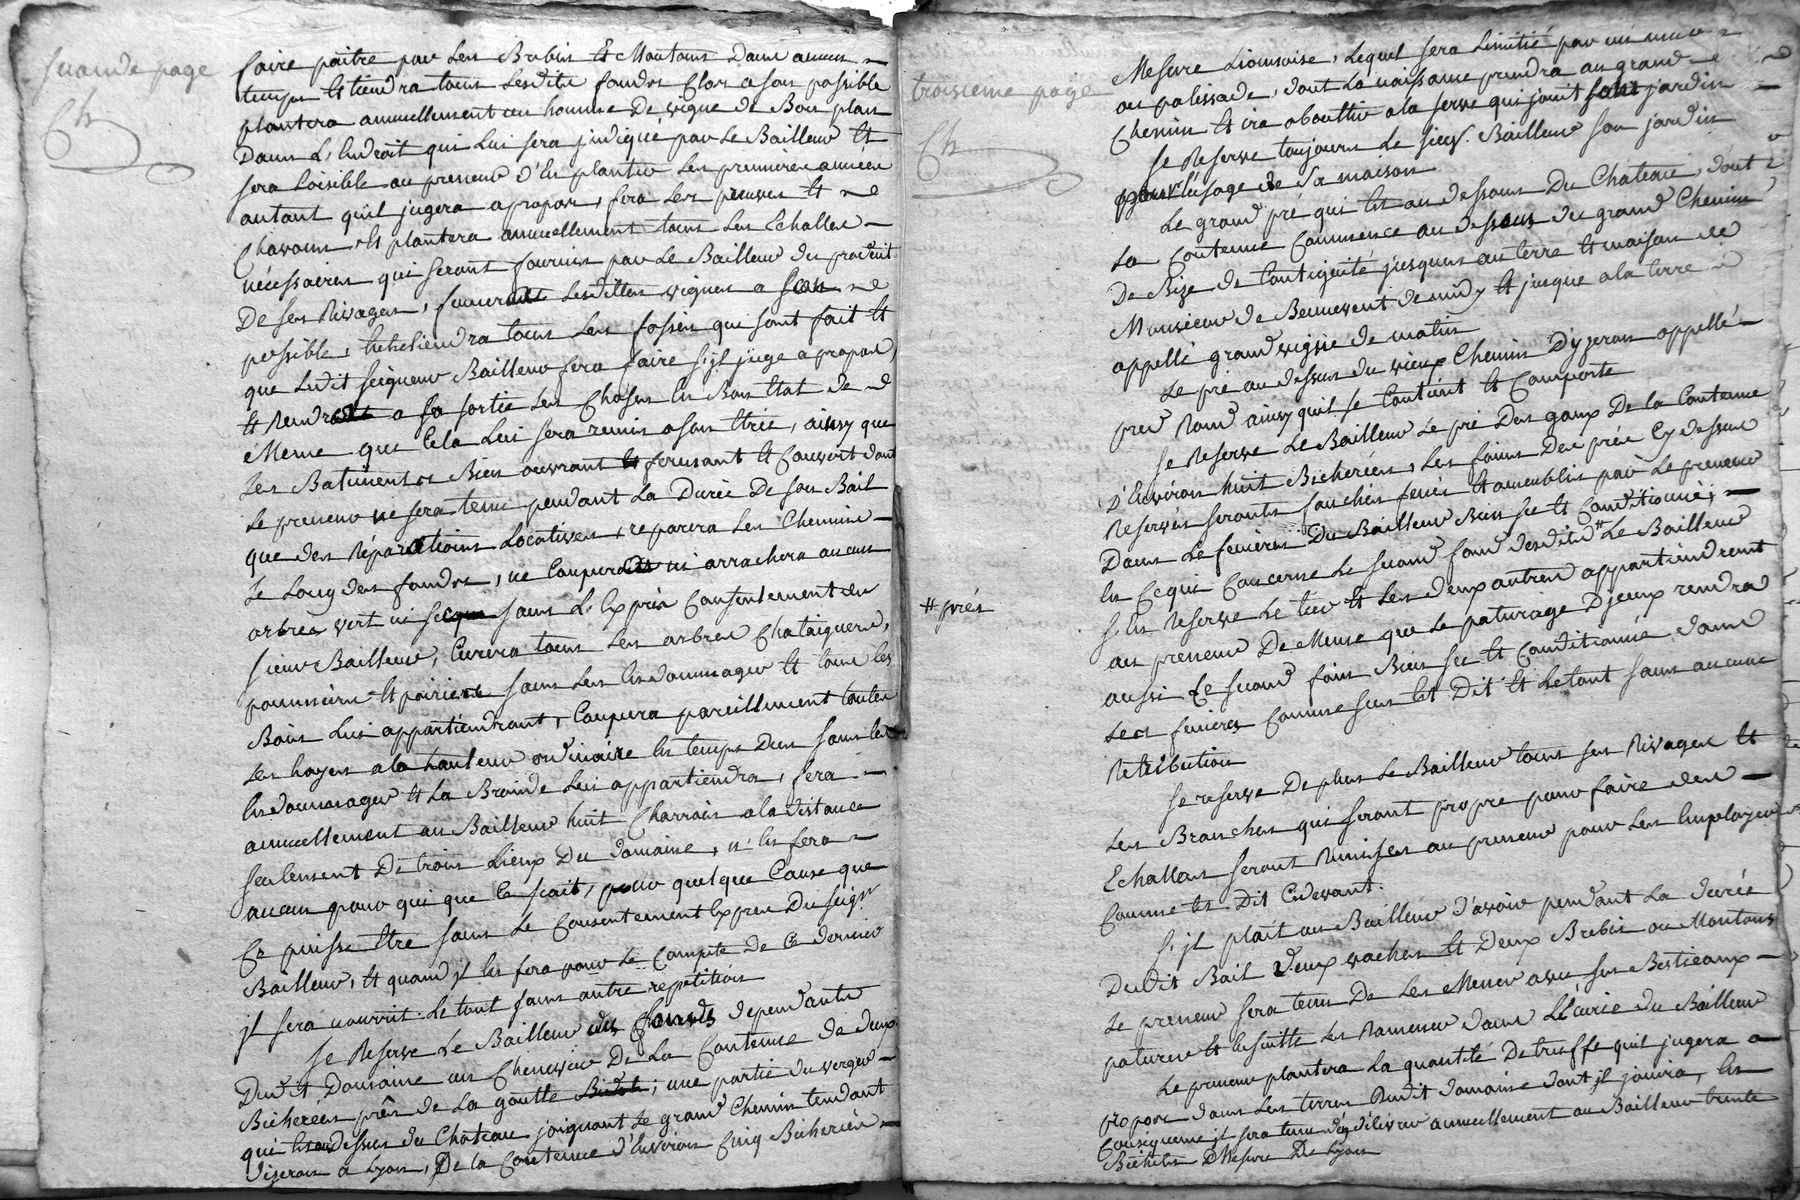 seconde page
Ch
faire paitre par les Brebis et Moutons dans aucun
temps et tiendra tous lesdits fonds Clos a son possible
plantera annuellement un homme De vigne de Bon plan
Dans L'Endroit qui Lui sera jndiqué par Le Bailleur Et
sera Loisible au preneur d'En planter Les premieres années
autant quil jugera apropos, fera Les preuves et
Chavons Et plantera annuellement tous Les Echallas
nécéssaires qui seront fournis par Le Bailleur du produit
De ses Rivages, fumera Lesdittes vignes a son
possible, Entretiendra tous Les fossés qui sont fait Et
que Ledit seigneur Bailleur fera faire s'jl juge apropos,
Et Rendra a sa sortie Les Choses En Bon Etat de
Meme que Cela Lui sera remis a son Entrée, ainsy que
Les Batiments Bien ouvrant et fermant Et Couvert dont
Le preneur ne sera tenu pendant La Durée De son Bail
que des Réparations Locatives, reparera Les Chemins
Le Long des fonds, ne Coupera ni arrachera aucun
arbres vert ni sec sans L'Exprès Consentement du
sieur Bailleur, Curera tous Les arbres Chataigners,
pommiers Et poiriers sans Les Endommager Et tous les
Bois Lui appartiendront, Coupera pareillement toutes
Les hayes a la hauteur ordinaire En temps Dus sans les
Endommager Et La Broinde Lui appartiendra, fera
annuellement au Bailleur huit Charrois a la distance
seulement De trois Lieux Du domaine, n'En fera
aucun pour qui que Ce soit, pour quelque Cause que
Ce puisse Etre sans Le Consentement Exprès Du seigr
Bailleur, Et quand jl En fera pour Le Compte de Ce dernier
jl sera nourrit Le tout sans autre repetition
Se Reserve Le Bailleur des fonds dependants
Dudit Domaine un Chenevier De La Contenue de deux
Bicherées près de La goutte; une partie du verger
qui Est au dessus du Chateau joignant Le grand Chemin tendant
d'izeron a Lyon, De la Contenue d'Environ Cinq Bicherées
troisieme page
Ch
Mesure Lionnoise, Lequel sera Limitté par un mur
ou palissade, dont La naissance prendra au grand
Chemin Et ira aboutir a la serve qui joint son jardin
Se Reserve toujours Le sieur Bailleur son jardin
pour L'usage de Sa maison
Le grand pré qui Est au dessous Du Chateau, dont
La Contenue Commence au dessous du grand Chemin
De Bize de Contiguité jusques au terre Et maison de
Monsieur de Bennevent de midy Et jusque a la terre
appellé grand vigne de matin
Le pré au dessus du vieux Chemin D'yzeron appellé
pré Rond ainsy quil se Contient Et Comporte
Se Reserve Le Bailleur Le pré Des goux De la Contenue
D'Environ huit Bicherées, Les foins Des prés Cy dessus
Reservés seronts fauchés fenés Et ameublis par Le preneur
Dans Le fenieres Du Bailleur Bien sec Et Conditionné;
En Cequi Concerne Le second foin desdits # Le Bailleur
# prés
s'En Reserve Le tier Et Les deux autres appartiendront
au preneur De Meme que Le paturage Djceux rendra
aussi Le second foin Bien sec Et Conditionné dans
Les fenieres Comme sus Est Dit Et Letout sans aucune
Retribution
Se reserve De plus Le Bailleur tous ses Rivages Et
Les Branches qui seront propre pour faire des
Echallas seront Remises au preneur pour Les Employer
Comme Est Dit Cidevant.
S'jl plait au Bailleur d'avoir pendant La durée
Dudit Bail deux vaches Et Deux Brebis ou Moutons
Le preneur sera tenu De Les Mener avec ses Bestieaux
paturer Et Ensuitte Les Ramener dans L'Ecurie du Bailleur
Le preneur plantera La quantité De truffe quil jugera a
propos dans Les terres Dudit domaine dont jl jouira, En
Consequence jl sera tenu d'En délivrer annuellement au Bailleur trente
Bichets Mesure De Lyon